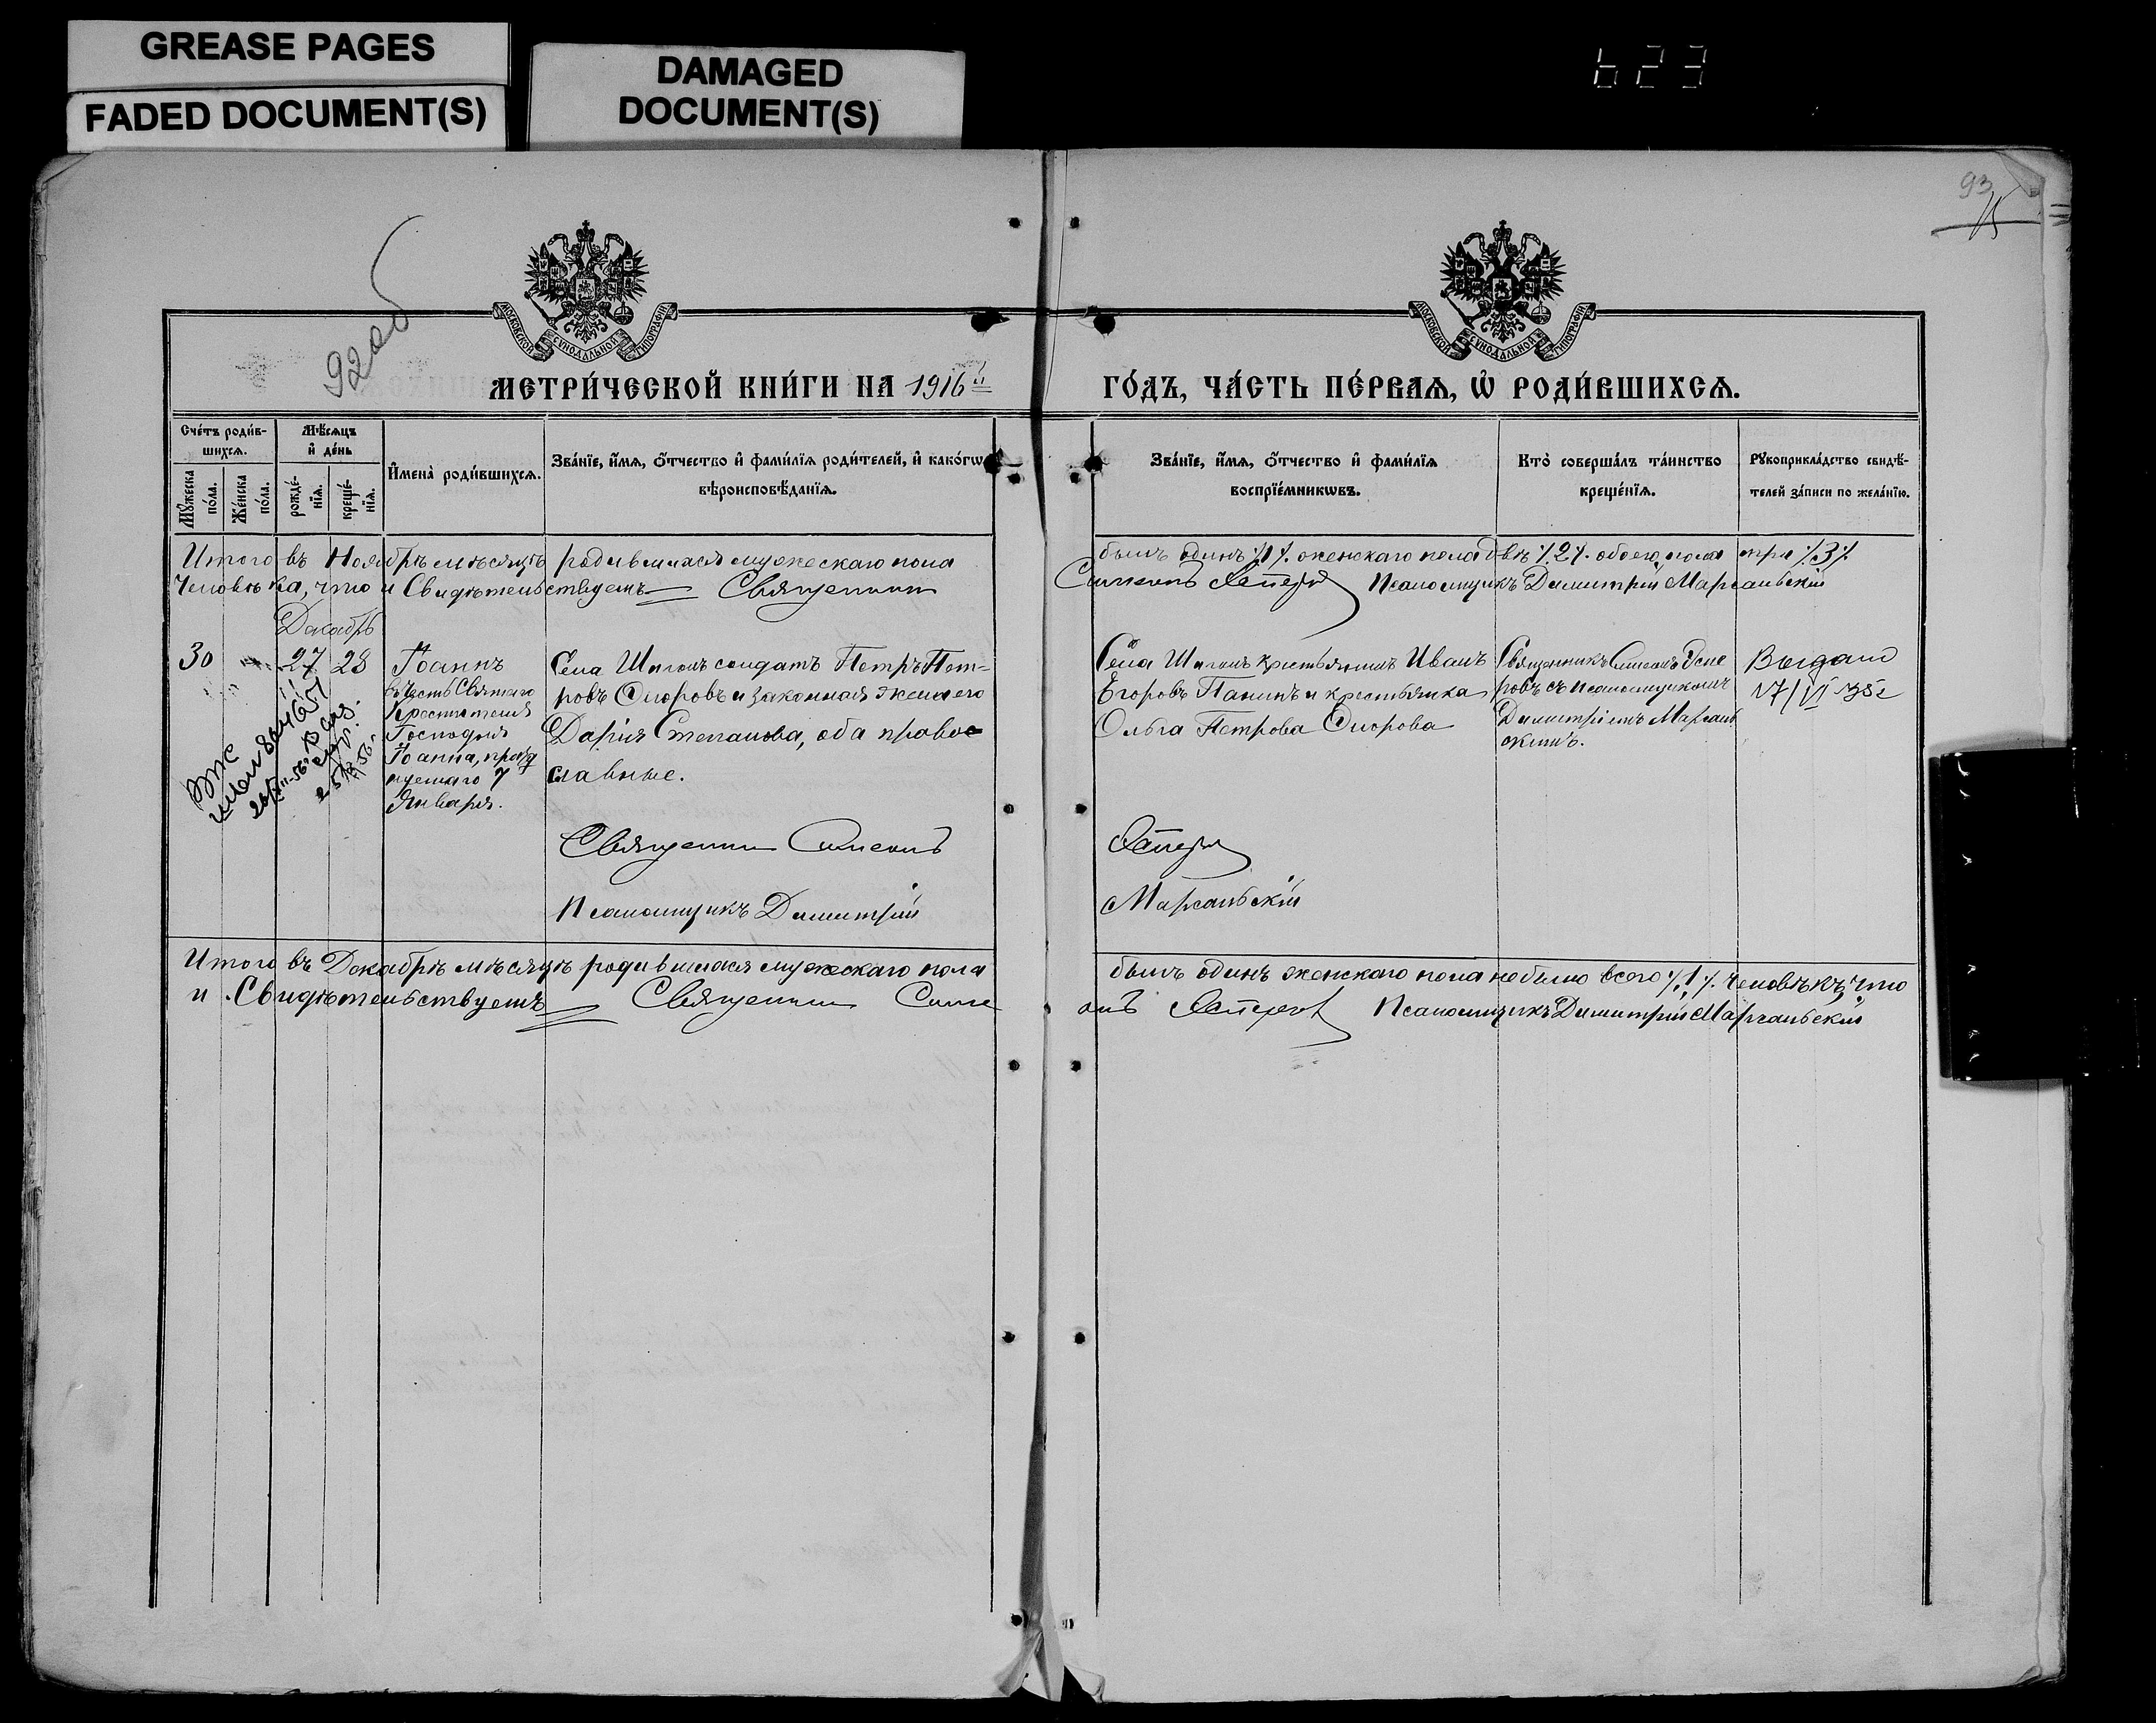 GREASE PAGES
FADED DOCUMENT(S)
DAMAGED
DOCUMENT(S)
623
93
92 об
МОСКОВСКОЙ СѴНОДАЛЬНОЙ ТИПОГРАФІИ
МОСКОВСКОЙ СѴНОДАЛЬНОЙ ТИПОГРАФІИ
МЕТРИ́ЧЕСКОЙ КНИ́ГИ НА 1916й
ГО́ДЪ, ЧА́СТЬ ПЕ́РВАѦ, Ѡ҆ РОДИ́ВШИХСѦ.
Сче́тъ роди́в-
шихсѧ.
Мꙋ́жеска по́ла.
Же́нска по́ла.
Мѣ́сѧцъ
и҆ де́нь
рожде́-
нїѧ.
креще́-
нїѧ.
И҆мена̀ роди́вшихсѧ.
Зва́нїе, и҆́мѧ, ѻ҆́тчество и҆ фами́лїѧ роди́телей, и҆ како́гѡ
вѣроисповѣ́данїѧ.
Зва́нїе, и҆́мѧ, ѻ҆́тчество и҆ фами́лїѧ
воспрїе́мникѡвъ.
Кто̀ соверша́лъ та́инство
креще́нїѧ.
Рꙋкоприкла́дство свидѣ́-
телей за́писи по жела́нїю.
Итого въ Ноябрѣ мѣсяцѣ родившихся мужескаго пола
былъ одинъ ./1/. женскаго пола двѣ ./2/. обоего пола три ./3/.
человѣка, что и Свидѣтельствуемъ Священник
Симеонъ Псаломщикъ Димитрій
Декабрь
30 " 27 28
Іоаннъ
въ честь Святаго
Крестителя
Господня
Іоанна, празд
нуемаго 7
Января.
Села Шигонъ солдатъ Петръ Пет-
ровъ Сидоровъ и законная жена его
Дарія Степанова, оба право-
славные.
Села Шигонъ крестьянинъ Иванъ
Егоровъ Панинъ и крестьянка
Ольга Петрова
Священникъ Симеонъ
ровъ съ псаломщикомъ
Димитріемъ
скимъ.
Выдано
17/VI 35 г
Священник Симеонъ
Псаломщикъ Димитрій
Итого въ Декабрѣ мѣсяцѣ родившихся мужескаго пола
былъ одинъ женскаго пола не было всего ./1/. человѣкъ, что
и Свидѣтельствуемъ Священник Симе
онъ Псаломщикъ Димитрій